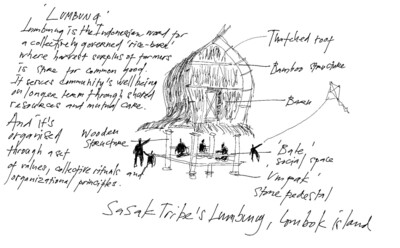 'LUMBUNG'
Lumbung is the Indonesian word for
a collectively governed 'rice-barn'
where harvest surplus of farmers
is store for common good.
It serves community's wellbeing
on longer term through shared
resources and mutual care.
And it's
organised
through a set
of values, collective rituals and
organizational principles.
Wooden
structure
Thatched roof
Bamboo structure
'Bale',
social space
Umpak
stone pedestal
Sasak Tribe's Lumbung, Lombok island